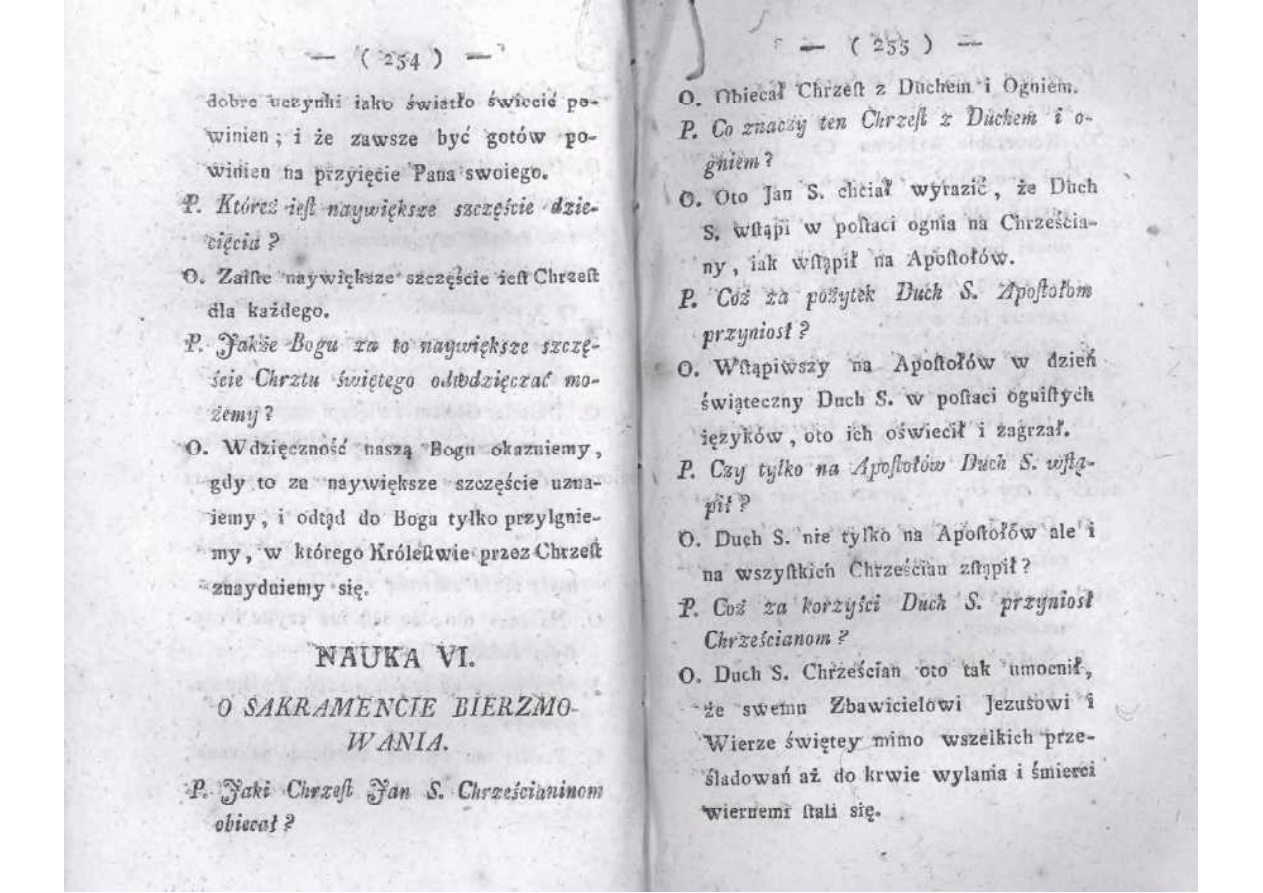 — ( 254 ) —
dobre uczynki iako światło świecić po-
winien ; i że zawsze być gotów po-
winien na przyięcie Pana swoiego.
P. Któreż ieſt naywiększe szczęście dzie-
cięcia ?
O. Zaiſte naywiększe szczęście ieſt Chrzeſt
dla każdego.
P. Jakże Bogu za to naywiększe szczę-
ście Chrztu świętego odwdzięczać mo-
żemy ?
O. Wdzięczność naszą Bogu okazuiemy ,
gdy to za naywiększe szczęście uzna-
iemy , i odtąd do Boga tylko przylgnie-
my , w którego Króleſtwie przez Chrzeſt
znayduiemy się.
NAUKA VI.
O SAKRAMENCIE BIERZMO-
WANIA.
P. Jaki Chrzeſt Jan S. Chrześcianinom
obiecał ?
— ( 255 ) —
O. Obiecał Chrzeſt z Duchem i Ogniem.
P. Co znaczy ten Chrzeſt z Duchem i o-
gniem ?
O. Oto Jan S. chciał wyrazić , że Duch
S. wſtąpi w poſtaci ognia na Chrześcia-
ny , iak wſtąpił na Apoſtołów.
P. Cóż za pożytek Duch S. Apoſtołom
przyniosł ?
O. Wſtąpiwszy na Apoſtołów w dzień
świąteczny Duch S. w poſtaci ogniſtych
ięzyków , oto ich oświecił i zagrzał.
P. Czy tylko na Apoſtołów Duch S. wſtą-
pił ?
O. Duch S. nie tylko na Apoſtołów ale i
na wszyſtkich Chrześcian zſtąpił ?
P. Coż za korzyści Duch S. przyniosł
Chrześcianom ?
O. Duch S. Chrześcian oto tak umocnił ,
że swemu Zbawicielowi Jezusowi i
Wierze świętey mimo wszelkich prze-
śladowań aż do krwie wylania i śmierci
wiernemi ſtali się.